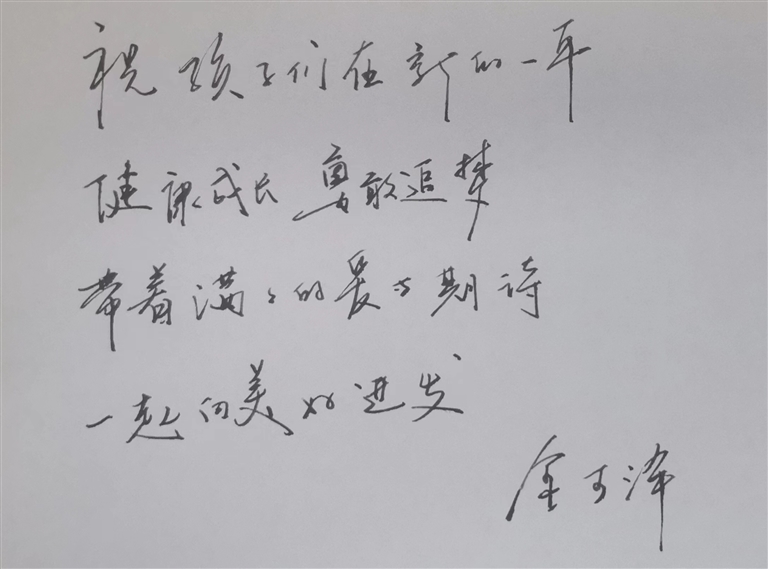 祝孩子们在新的一年
健康成长 勇敢追梦
带着满满的爱与期待
一起向美好进发
金可泽